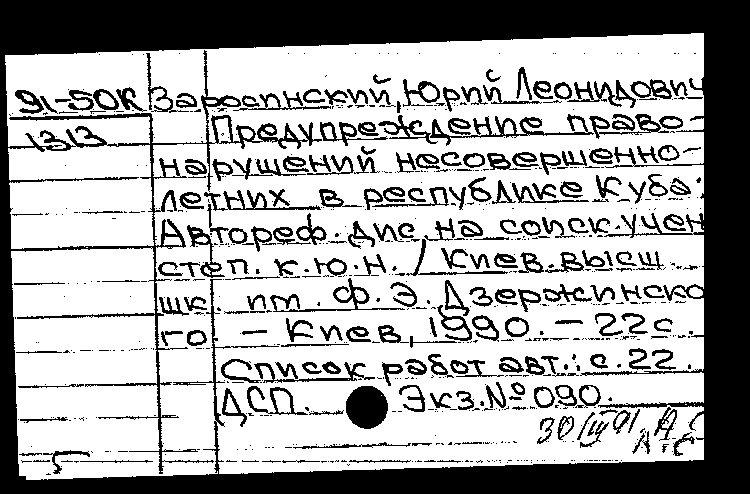 91-50К Зароспнский, Юрий Леонидович
1313 Предупреждение право-
нарушений несовершенно-
летних в республике Куба:
Автореф. дис. на соиск. учен
степ. к.ю.н. / Киев. высш.
шк. им. Ф.Э. Дзержинско
го. - Киев, 1990. - 22 с.
Список работ авт.: с. 22.
ДСП. Экз. № 090.
30/III 91. А.С
А.С
5